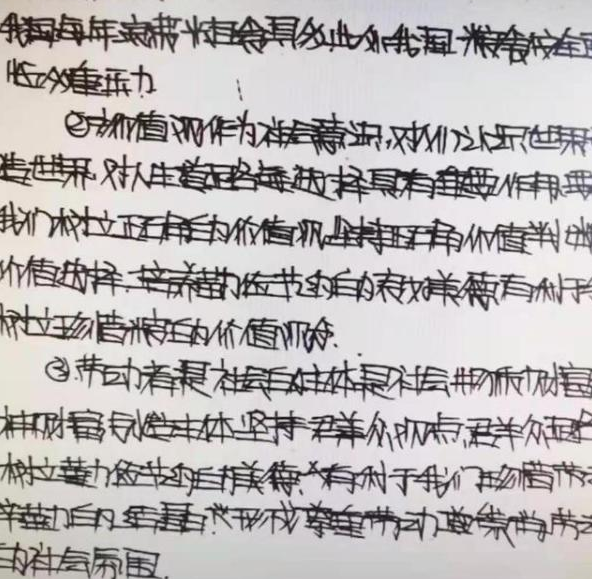 我国每年浪费粮食具多此外我国粮食存在
临多重压力
②价值观作为社会意识,对我们认识世界
造世界,对人生道路的选择具有重要作用要
我们树立正确的价值观,坚持正确价值判断
价值选择.培养勤俭节约的良好美德,有利于
树立珍惜粮食的价值观念.
③劳动者是社会的主体是社会物质财富
神财富创造主体坚持群众观点,群众路
树立勤俭节约的美德.有利于我们珍惜劳
辛勤的结晶.形成尊重劳动崇尚劳
的社会氛围.